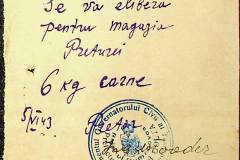 Se va elibera
pentru magazia
Preturei
6 kg carne
5/VI.43
Pretor,
Guvernatorului Civil al